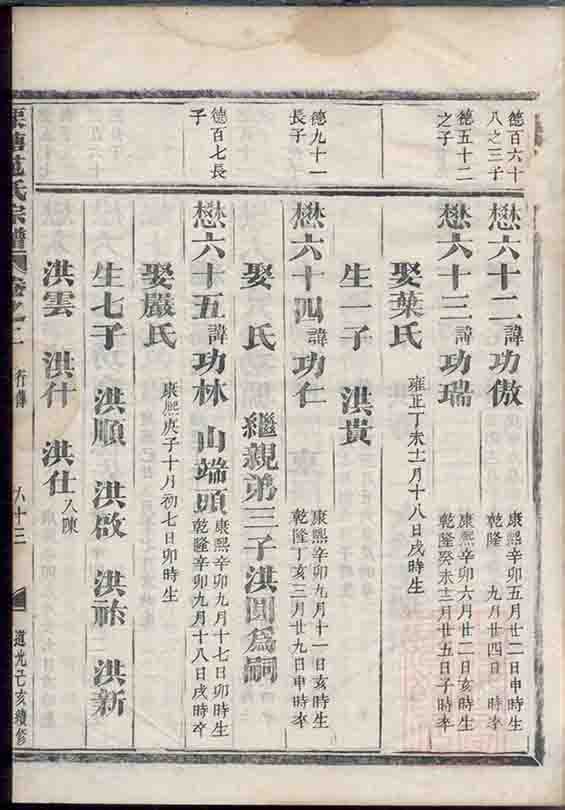 德百六十
八之三子
懋六十二諱功傲
康熙辛卯五月廿二日申時生
乾隆 九月廿四日 時卒
德五十二
之子
懋六十三諱功瑞
康熙辛卯六月廿二日亥時生
乾隆癸未十二月廿五日子時卒
娶葉氏
雍正丁未十二月十八日戌時生
生一子 洪貴
德九十一
長子
懋六十四諱功仁
康熙辛卯九月十一日亥時生
乾隆丁亥三月廿九日申時卒
娶 氏 繼親弟三子洪圓爲嗣
德百七長
子
懋六十五諱功林 山端頭
康熙辛卯九月十七日卯時生
乾隆辛卯九月十八日戌時卒
娶嚴氏
康熙庚子十月初七日卯時生
生七子 洪順 洪啟 洪祚 洪新
洪雲 洪什 洪仕入陳
氏宗譜 卷之二 行傳 六十三 道光己亥續修